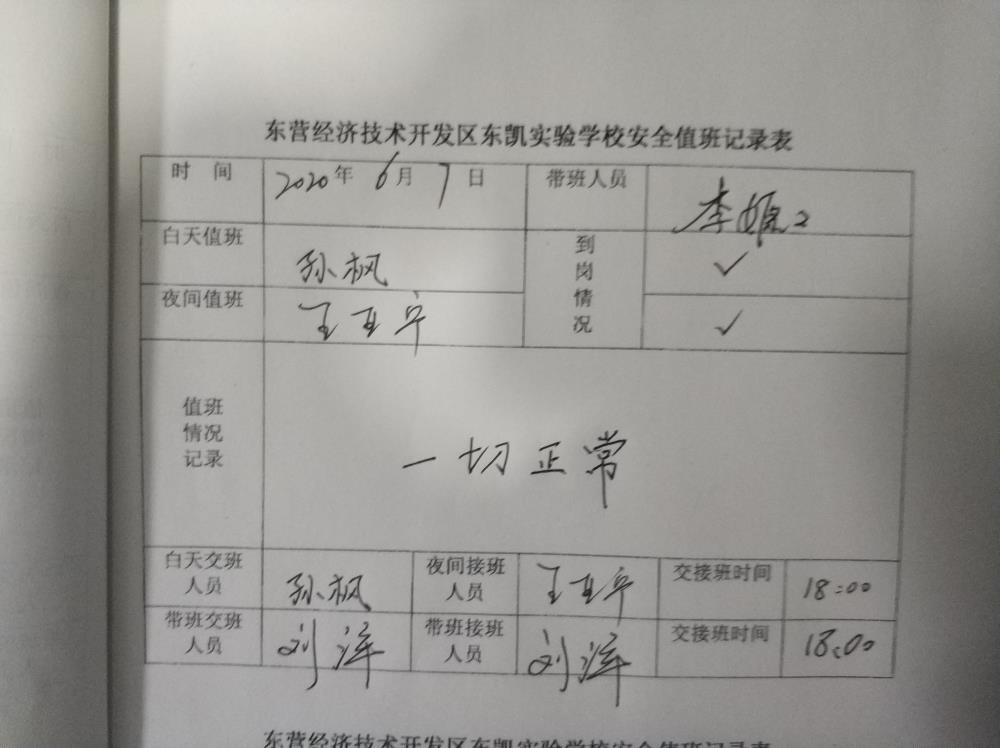 东营经济技术开发区东凯实验学校安全值班记录表
时 间 2020年 6月 7日 带班人员 李
白天值班 孙枫 到岗情况 ✓
夜间值班 王亚宁 ✓
值班情况记录 一切正常
白天交班人员 孙枫 夜间接班人员 王亚宁 交接班时间 18:00
带班交班人员 刘洋 带班接班人员 刘洋 交接班时间 18:00
东营经济技术开发区东凯实验学校安全值班记录表